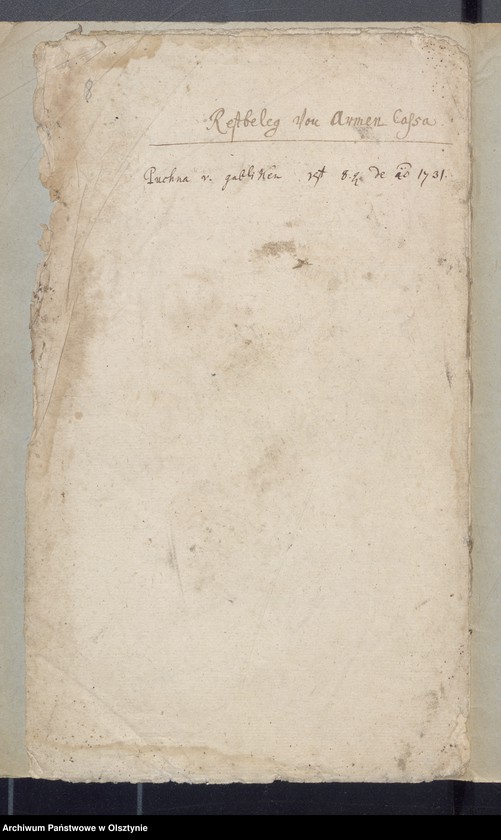 8
Restbeleg Von Armen Cassa
Puchna v. rest 8 de aõ 1731.
Archiwum Państwowe w Olsztynie